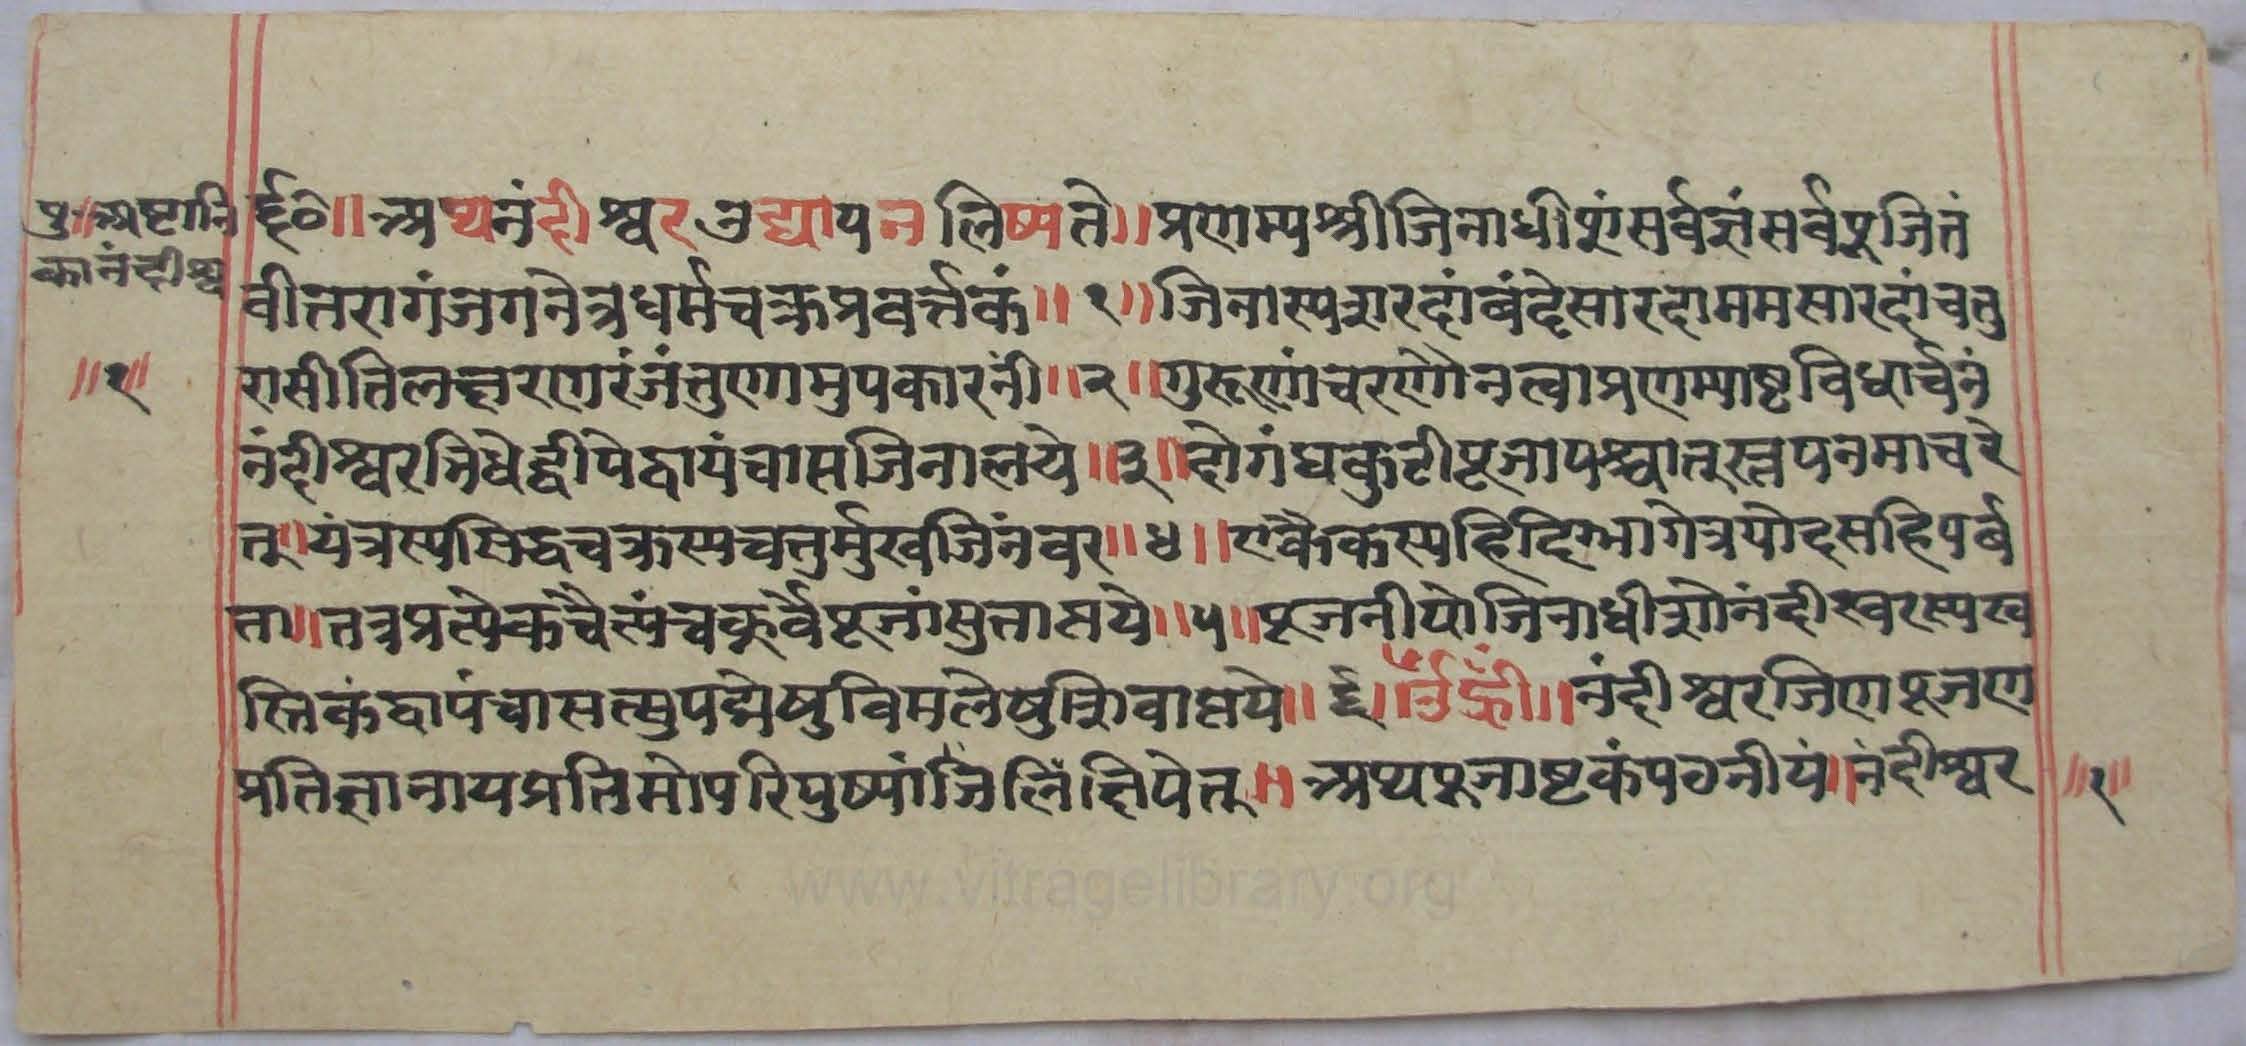 पु॥अष्टानि
कानंदीश्व
॥१॥
ई०॥अथनंदीश्वरउद्यापनलिष्यते॥प्रणम्यश्रीजिनाधीशंसर्वज्ञंसर्वपूजितं
वीतरागंजगनेत्रधर्मचक्रप्रवर्त्तकं॥१॥जिनास्यशारदांबंदेसारदाममसारदांचतु
रासीतिलक्षरणरंजंतुणामुपकारनी॥२॥गुरूणांचरणौनत्वाप्रणम्याष्टविधार्चनं
नंदीश्वरभिधेद्वीपेद्वायंचासजिनालये॥३॥दोगंधकुटीपूजापश्चात्स्नपनमाचरे
त्॥यंत्रस्यसिद्धचक्रस्यचतुर्मुखजिनंवर॥४॥एकैकस्यहिदिग्भागेत्रयोदसहिपर्ब
ता॥तत्रप्रत्येकचैत्यंचकूर्वेपूजांसुतासये॥५॥पूजनीयोजिनाधीशोनंदीस्वरस्यस्व
स्तिकंद्वापंचासत्सुपद्मेषुविमलेषुशिवाप्तये॥६॥ॐह्रीं॥नंदीश्वरजिणपूजण
प्रतिज्ञानायप्रतिमोपरिपुष्पांजिलिंक्षिपेत्॥अथपूजाष्टकंपठनीयं॥नंदीश्वर
॥१॥
www.vitragelibrary.org